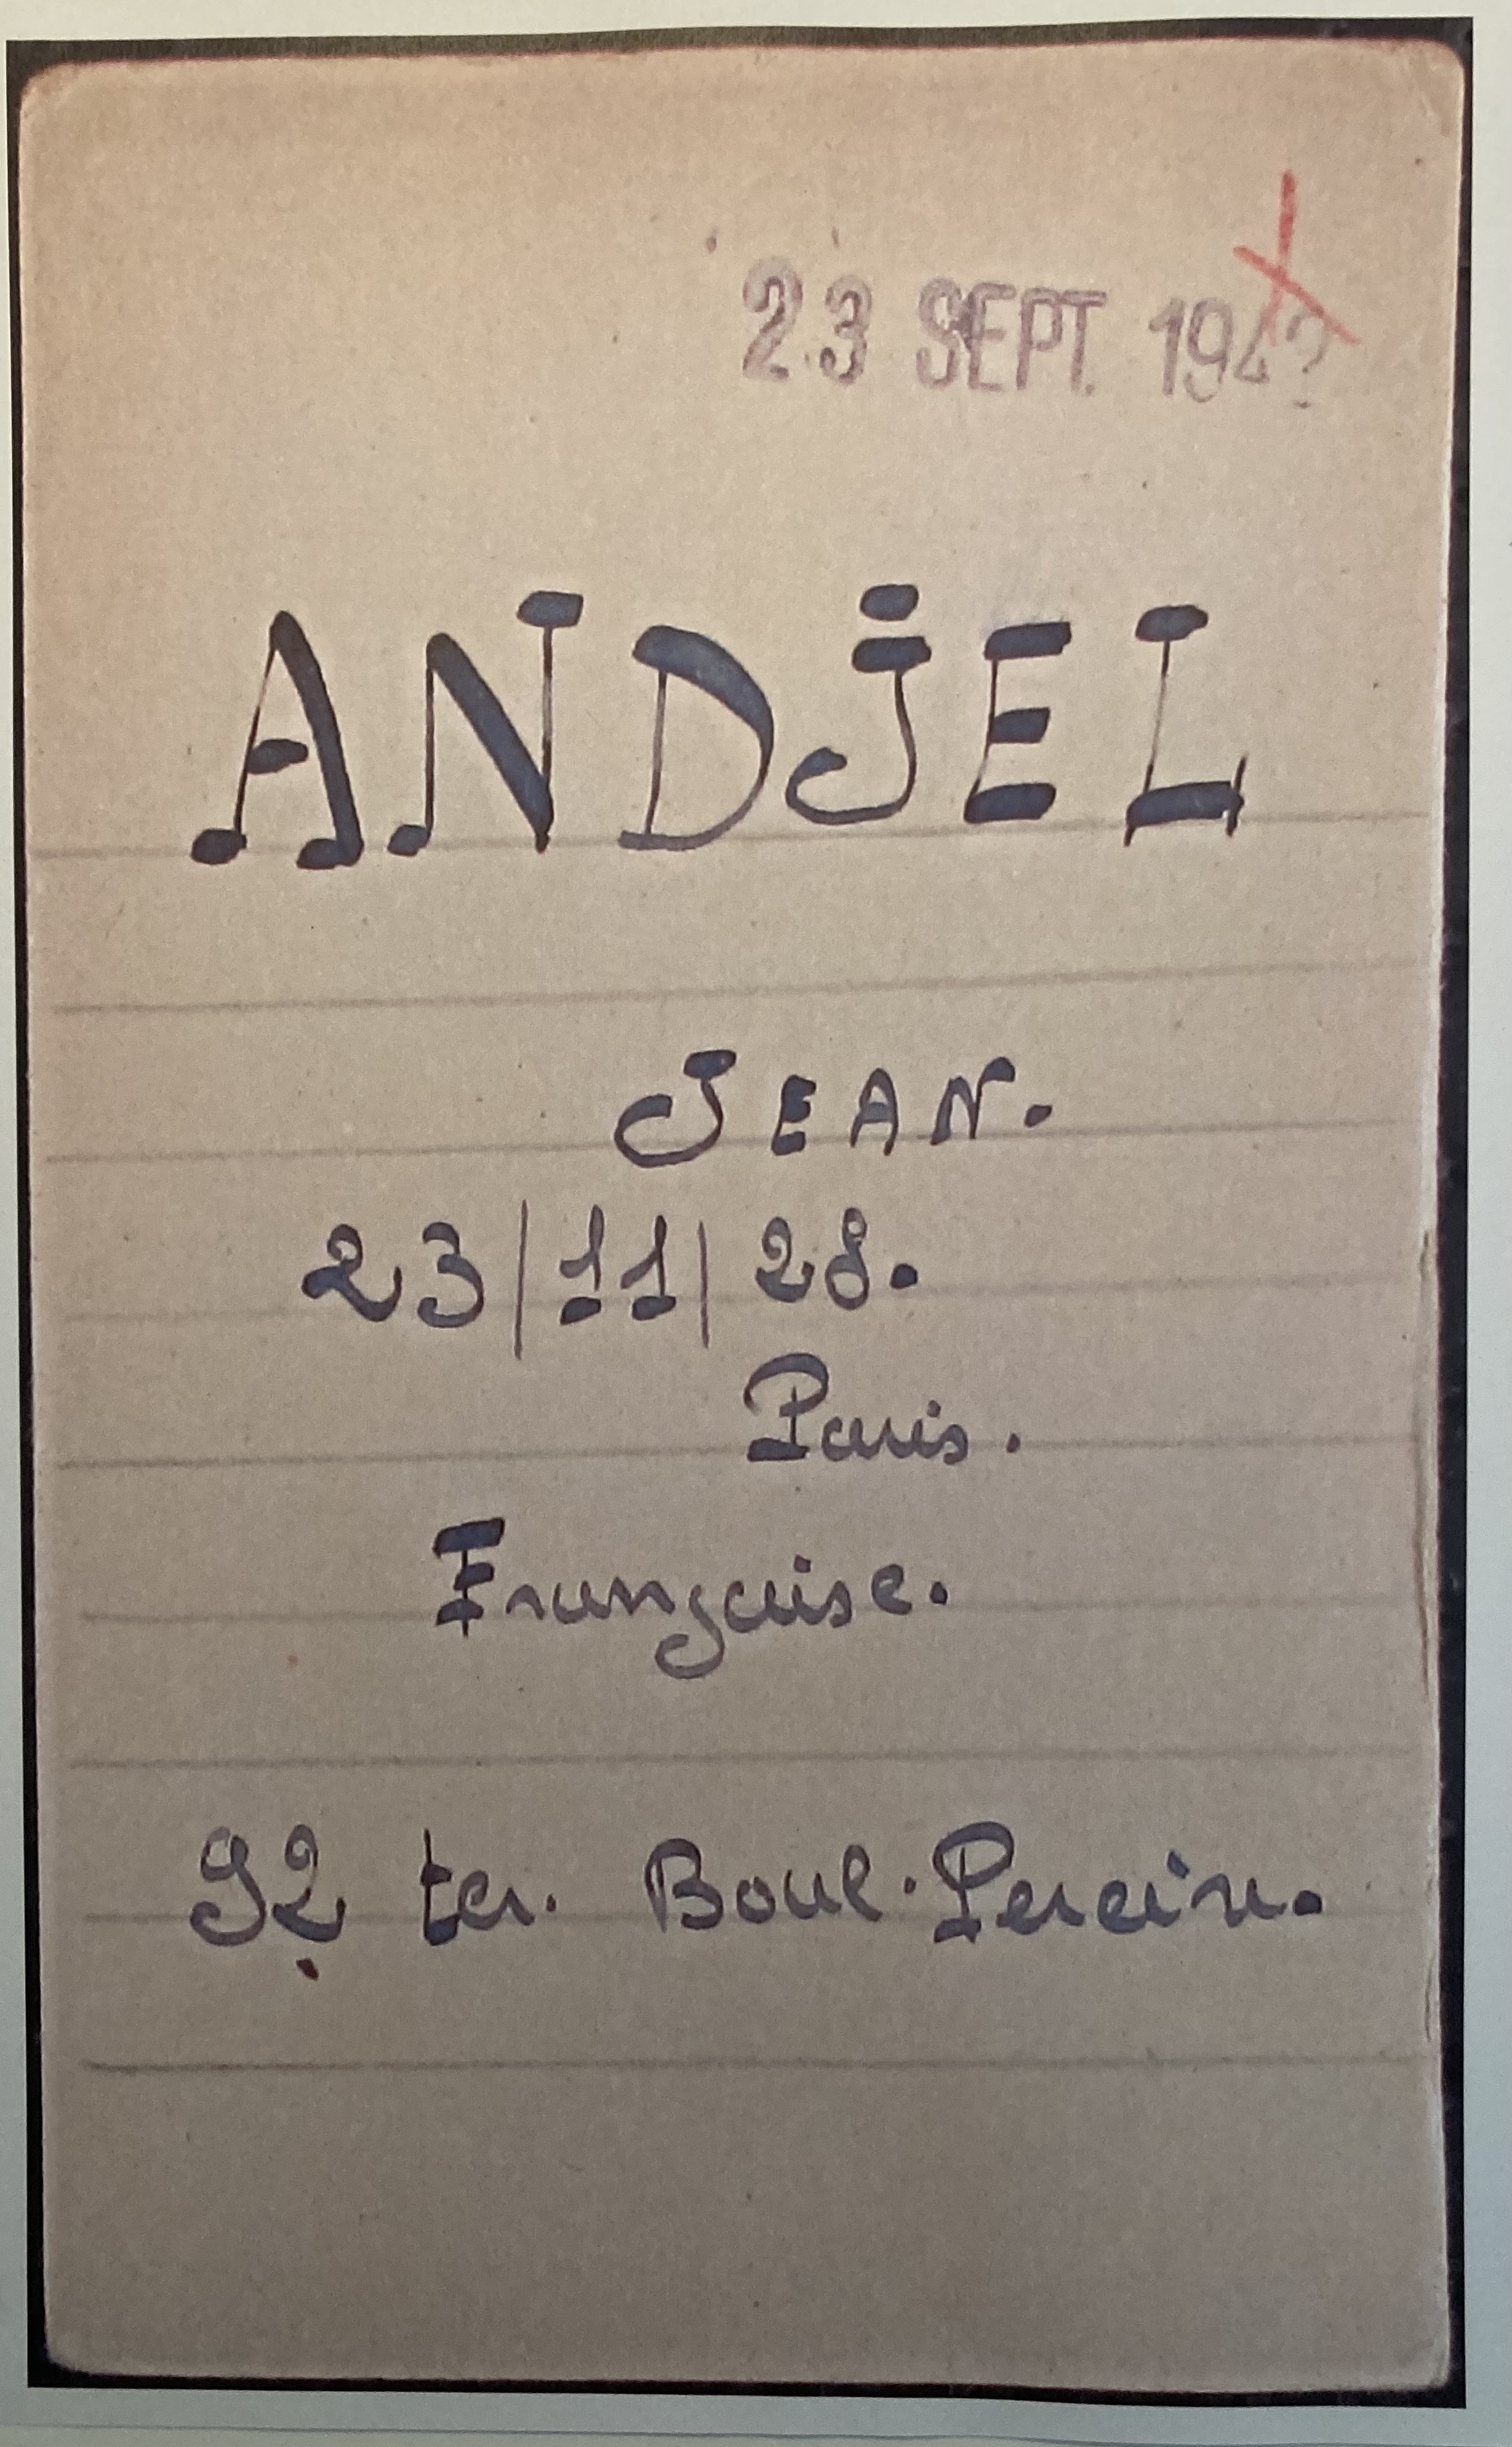 23 SEPT. 1942
ANDJEL
JEAN.
23/11/28.
Paris.
Française.
92 ter. Boul. Pereire.